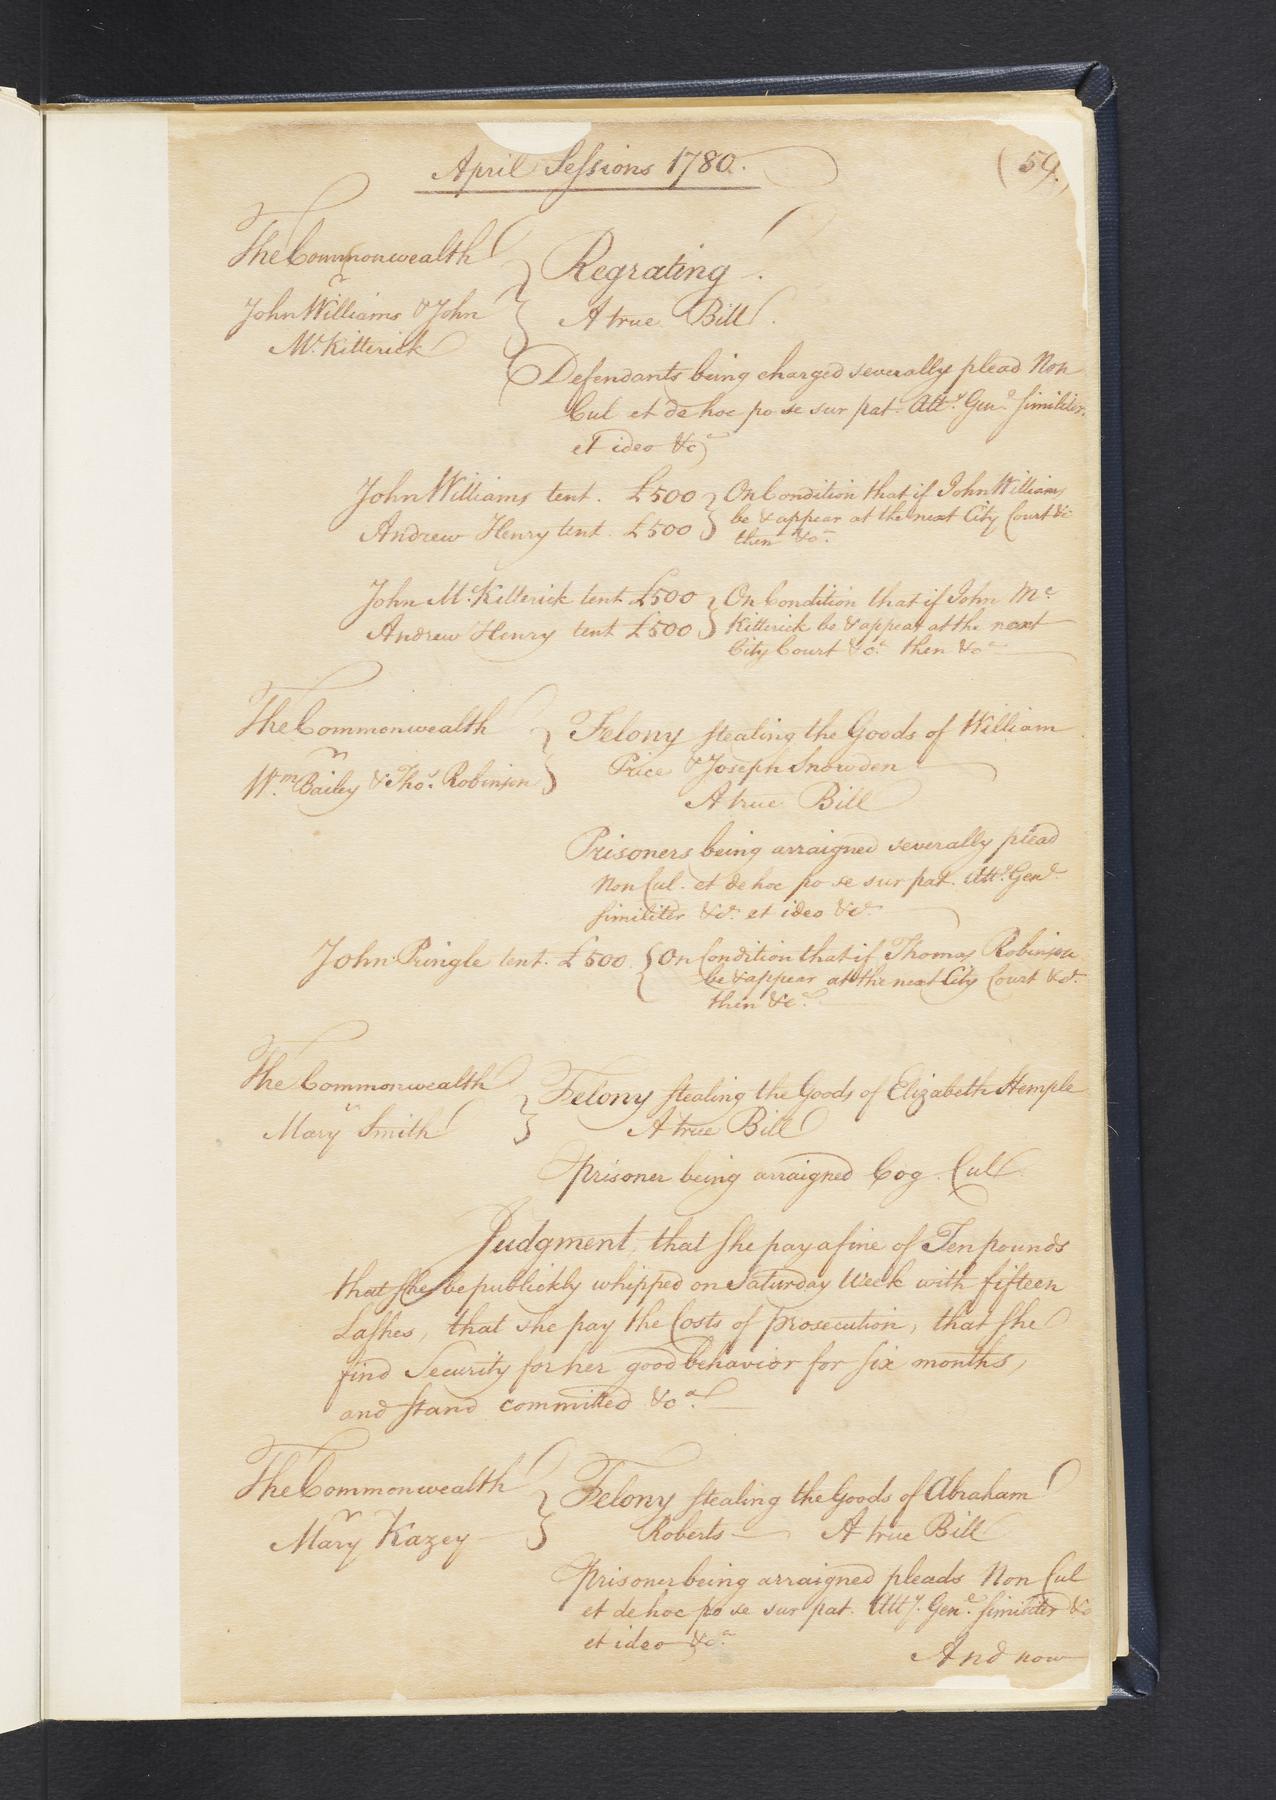 April Sessions 1780.
(59.)
The Commonwealth
v
John Williams & John
Mc. Kitterick
Regrating.
A true Bill.
Defendants being charged severally plead Non
Cul et de hoc po se sur pat. Atty. Genl. similiter.
et ideo &c
John Williams tent. £500
Andrew Henry tent. £500
On Condition that if John Williams
be & appear at the next City Court &c
then &ca.
John Mc. Kitterick tent £500
Andrew Henry tent £500
On Condition that if John Mc
Kitterick be & appear at the next
City Court &ca. then &ca
The Commonwealth
v
Wm. Bailey & Thos. Robinson
Felony stealing the Goods of William
Price & Joseph Snowden
A true Bill
Prisoners being arraigned severally plead
Non Cul. et de hoc po se sur pat. Atty. Genl.
similiter &ca. et ideo &ca.
John Pringle tent. £500.
On Condition that if Thomas Robinson
be & appear at the next City Court &ca.
then &ca.
The Commonwealth
v
Mary Smith
Felony stealing the Goods of Elizabeth Hemple
A true Bill
Prisoner being arraigned Cog. Cul.
Judgment, that she pay a fine of Ten pounds
that she be publickly whipped on Saturday Week with fifteen
Lashes, that she pay the Costs of prosecution, that she
find Security for her good behavior for six months,
and stand committed &ca.
The Commonwealth
v
Mary Kazey
Felony stealing the Goods of Abraham
Roberts A true Bill
Prisoner being arraigned pleads Non Cul
et de hoc po se sur pat. Atty. Genl. similiter &c
et ideo &ca.
And now